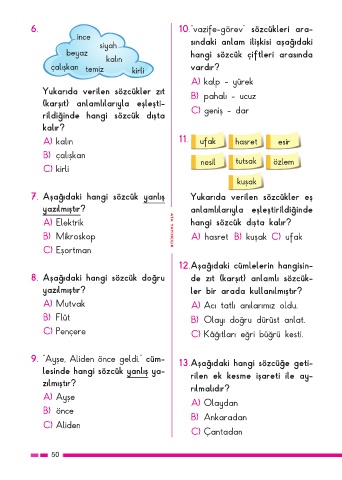 6.
ince
siyah
beyaz
kalın
çalışkan temiz kirli
Yukarıda verilen sözcükler zıt
(karşıt) anlamlılarıyla eşleşti-
rildiğinde hangi sözcük dışta
kalır?
A) kalın
B) çalışkan
C) kirli
7. Aşağıdaki hangi sözcük yanlış
yazılmıştır?
A) Elektrik
B) Mikroskop
C) Eşortman
8. Aşağıdaki hangi sözcük doğru
yazılmıştır?
A) Mutvak
B) Flüt
C) Pençere
9. "Ayşe, Aliden önce geldi." cüm-
lesinde hangi sözcük yanlış ya-
zılmıştır?
A) Ayşe
B) önce
C) Aliden
10."vazife-görev" sözcükleri ara-
sındaki anlam ilişkisi aşağıdaki
hangi sözcük çiftleri arasında
vardır?
A) kalp - yürek
B) pahalı - ucuz
C) geniş - dar
11. ufak hasret esir
nesil tutsak özlem
kuşak
Yukarıda verilen sözcükler eş
anlamlılarıyla eşleştirildiğinde
hangi sözcük dışta kalır?
A) hasret B) kuşak C) ufak
12.Aşağıdaki cümlelerin hangisin-
de zıt (karşıt) anlamlı sözcük-
ler bir arada kullanılmıştır?
A) Acı tatlı anılarımız oldu.
B) Olayı doğru dürüst anlat.
C) Kâğıtları eğri büğrü kesti.
13.Aşağıdaki hangi sözcüğe geti-
rilen ek kesme işareti ile ay-
rılmalıdır?
A) Olaydan
B) Ankaradan
C) Çantadan
50